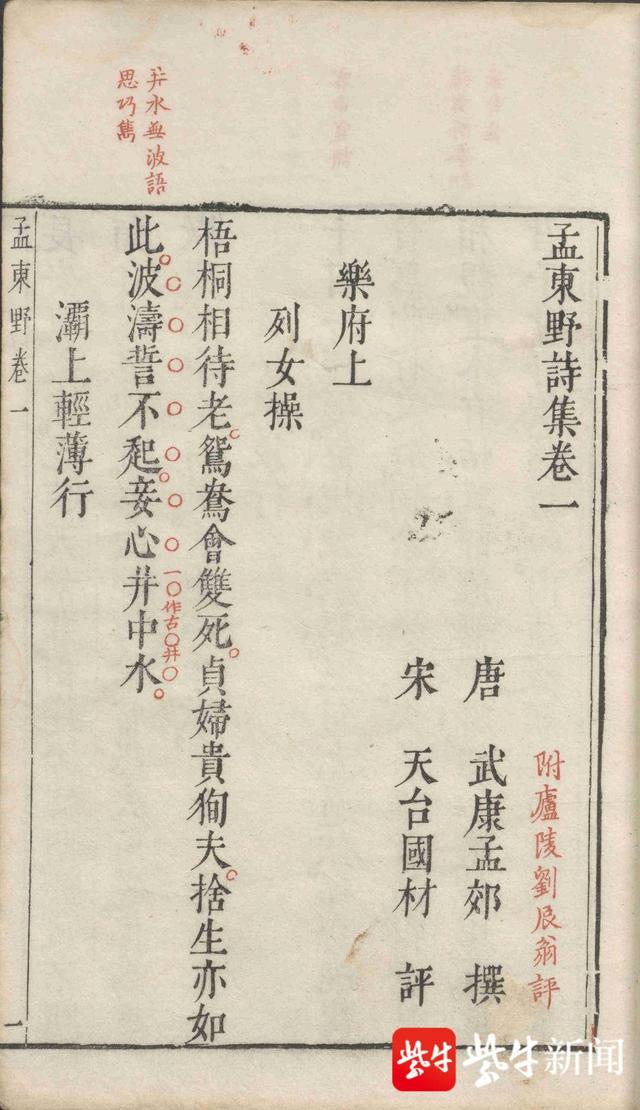 孟東野詩集卷一
附廬陵劉辰翁評
唐 武康孟郊 撰
宋 天台國材 評
樂府上
列女操
梧桐相待老鴛鴦會雙死貞婦貴狥夫捨生亦如
此波濤誓不起妾心井中水
一作古井
井水無波語
思巧雋
灞上輕薄行
孟東野卷一
一
紫牛 紫牛新闻